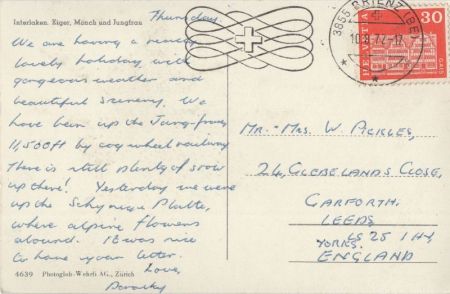 Interlaken. Eiger, Mönch und Jungfrau
Thursday.
We are having a really
lovely holiday with
gorgeous weather and
beautiful scenery. We
have been up the Jung-frau
11,500ft by cog wheel railway
There is still plenty of snow
up there! Yesterday we were
up the Schynige Platte,
where alpine flowers
abound. It was nice
to have your letter.
Love,
Dorothy
4639 Photoglob-Wehrli AG., Zürich
3855 BRIENZ (BE)
HELVETIA
30
GAIS
Mr.-Mrs. W. Ackles,
24, Glebelands Close,
Garforth,
Leeds
LS 25 1HY
Yorks.
England